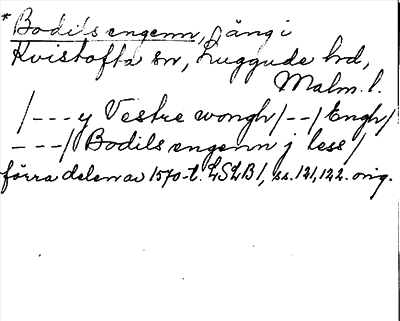 * Bodils engenn, äng i
Kvistofta sn, Luggude hd,
Malm. l.
/--- y Vestre wongh/--/Engh/
---/ Bodils engenn j less/
förra delen av 1570-t. LSLB1, ss. 121, 122. orig.